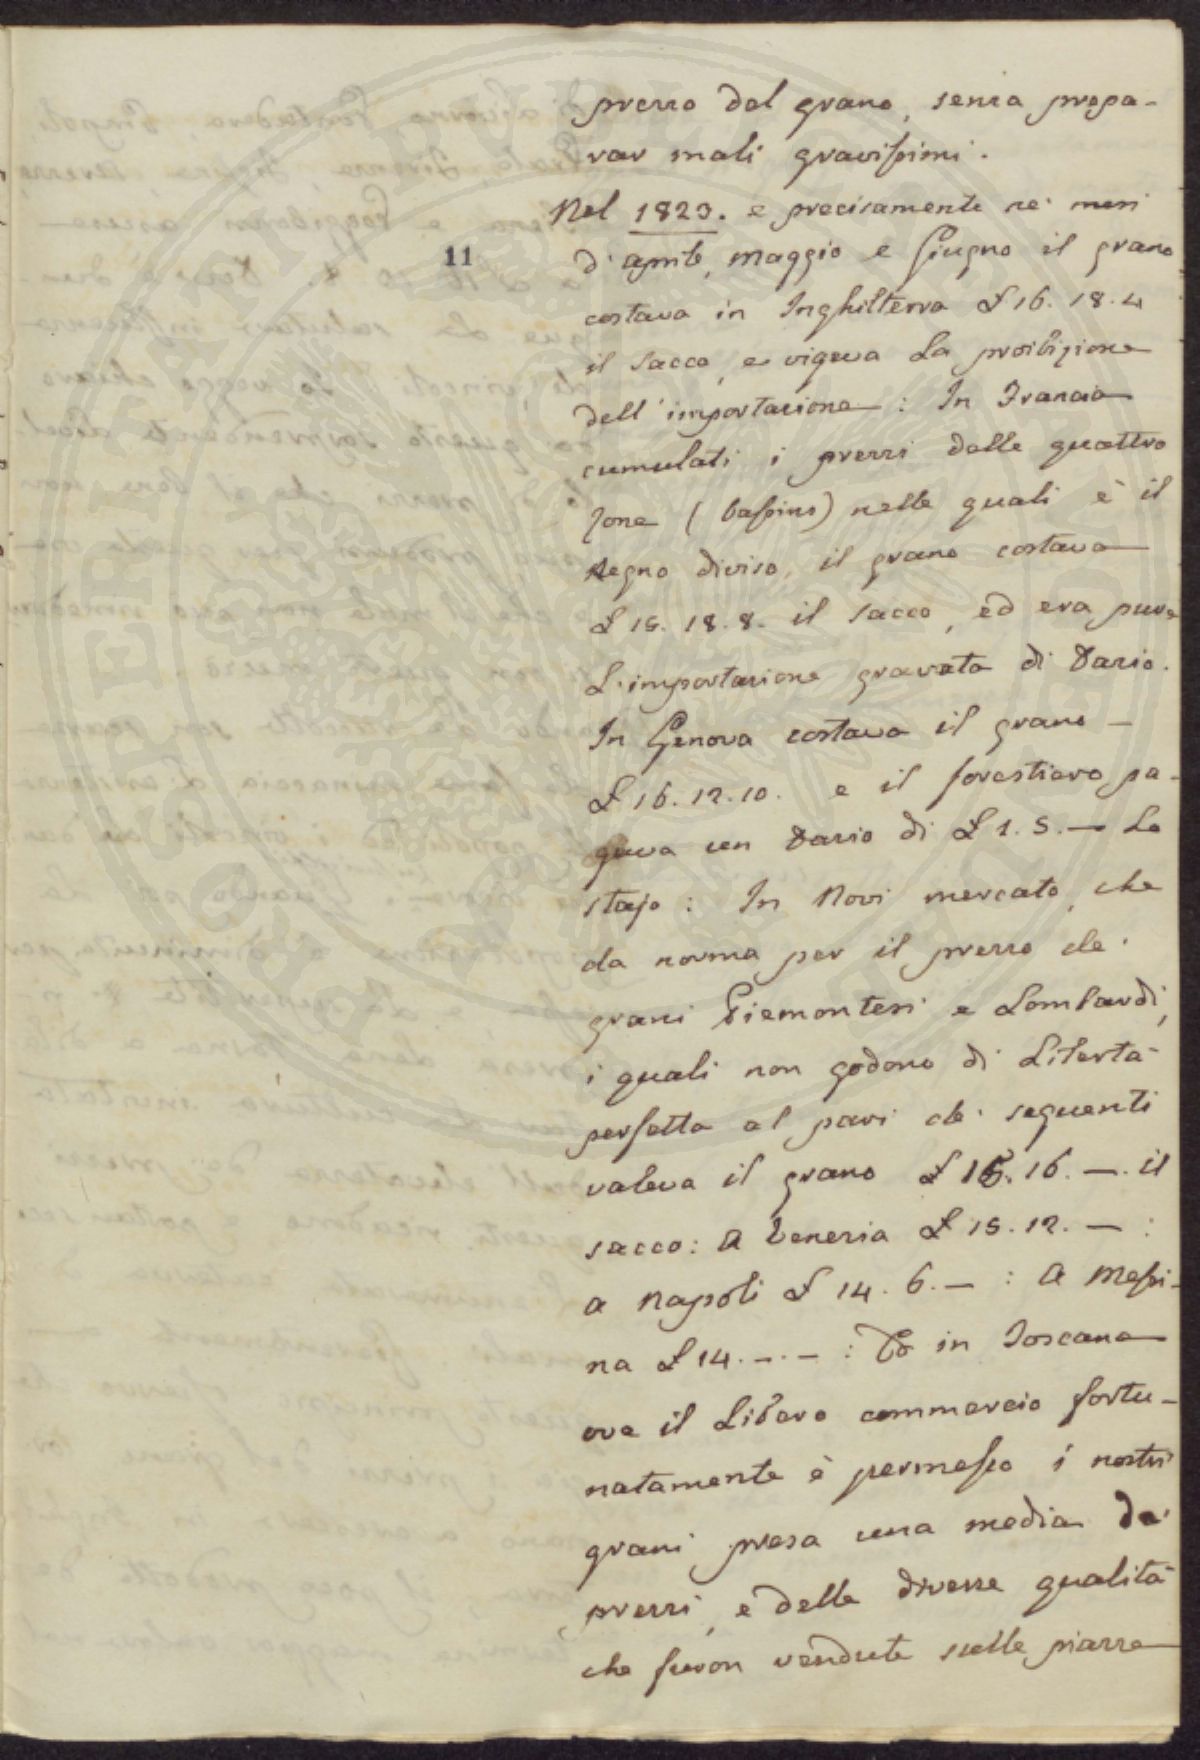 prezzo del grano, senza prepa-
rar mali gravissimi.
Nel 1823. e precisamente ne' mesi
11
d'aprile, maggio e Giugno il grano
costava in Inghilterra £ 16. 18. 4
il sacco, e vigeva la proibizione
dell'importazione: In Francia
cumulati i prezzi delle quattro
zone (bassins) nelle quali è il
Regno diviso, il grano costava
£ 15. 18. 8. il sacco, ed era pure
L'importazione gravata di Dazio.
In Genova costava il grano —
£ 16. 12. 10. e il forestiero pa-
gava un Dazio di £ 1. 5. — Lo
stajo: In Novi mercato, che
da norma per il prezzo de'
grani Piemontesi e Lombardi,
i quali non godono di Libertà
perfetta al pari de' seguenti
valeva il grano £ 15. 16. —. il
sacco: A Venezia £ 15. 12. — :
a Napoli £ 14. 6. — : A Messi-
na £ 14. —. — : Ed in Toscana
ove il Libero commercio fortu-
natamente è permesso i nostri
grani presa una media de'
prezzi, e delle diverse qualità
che furon vendute sulle piazze